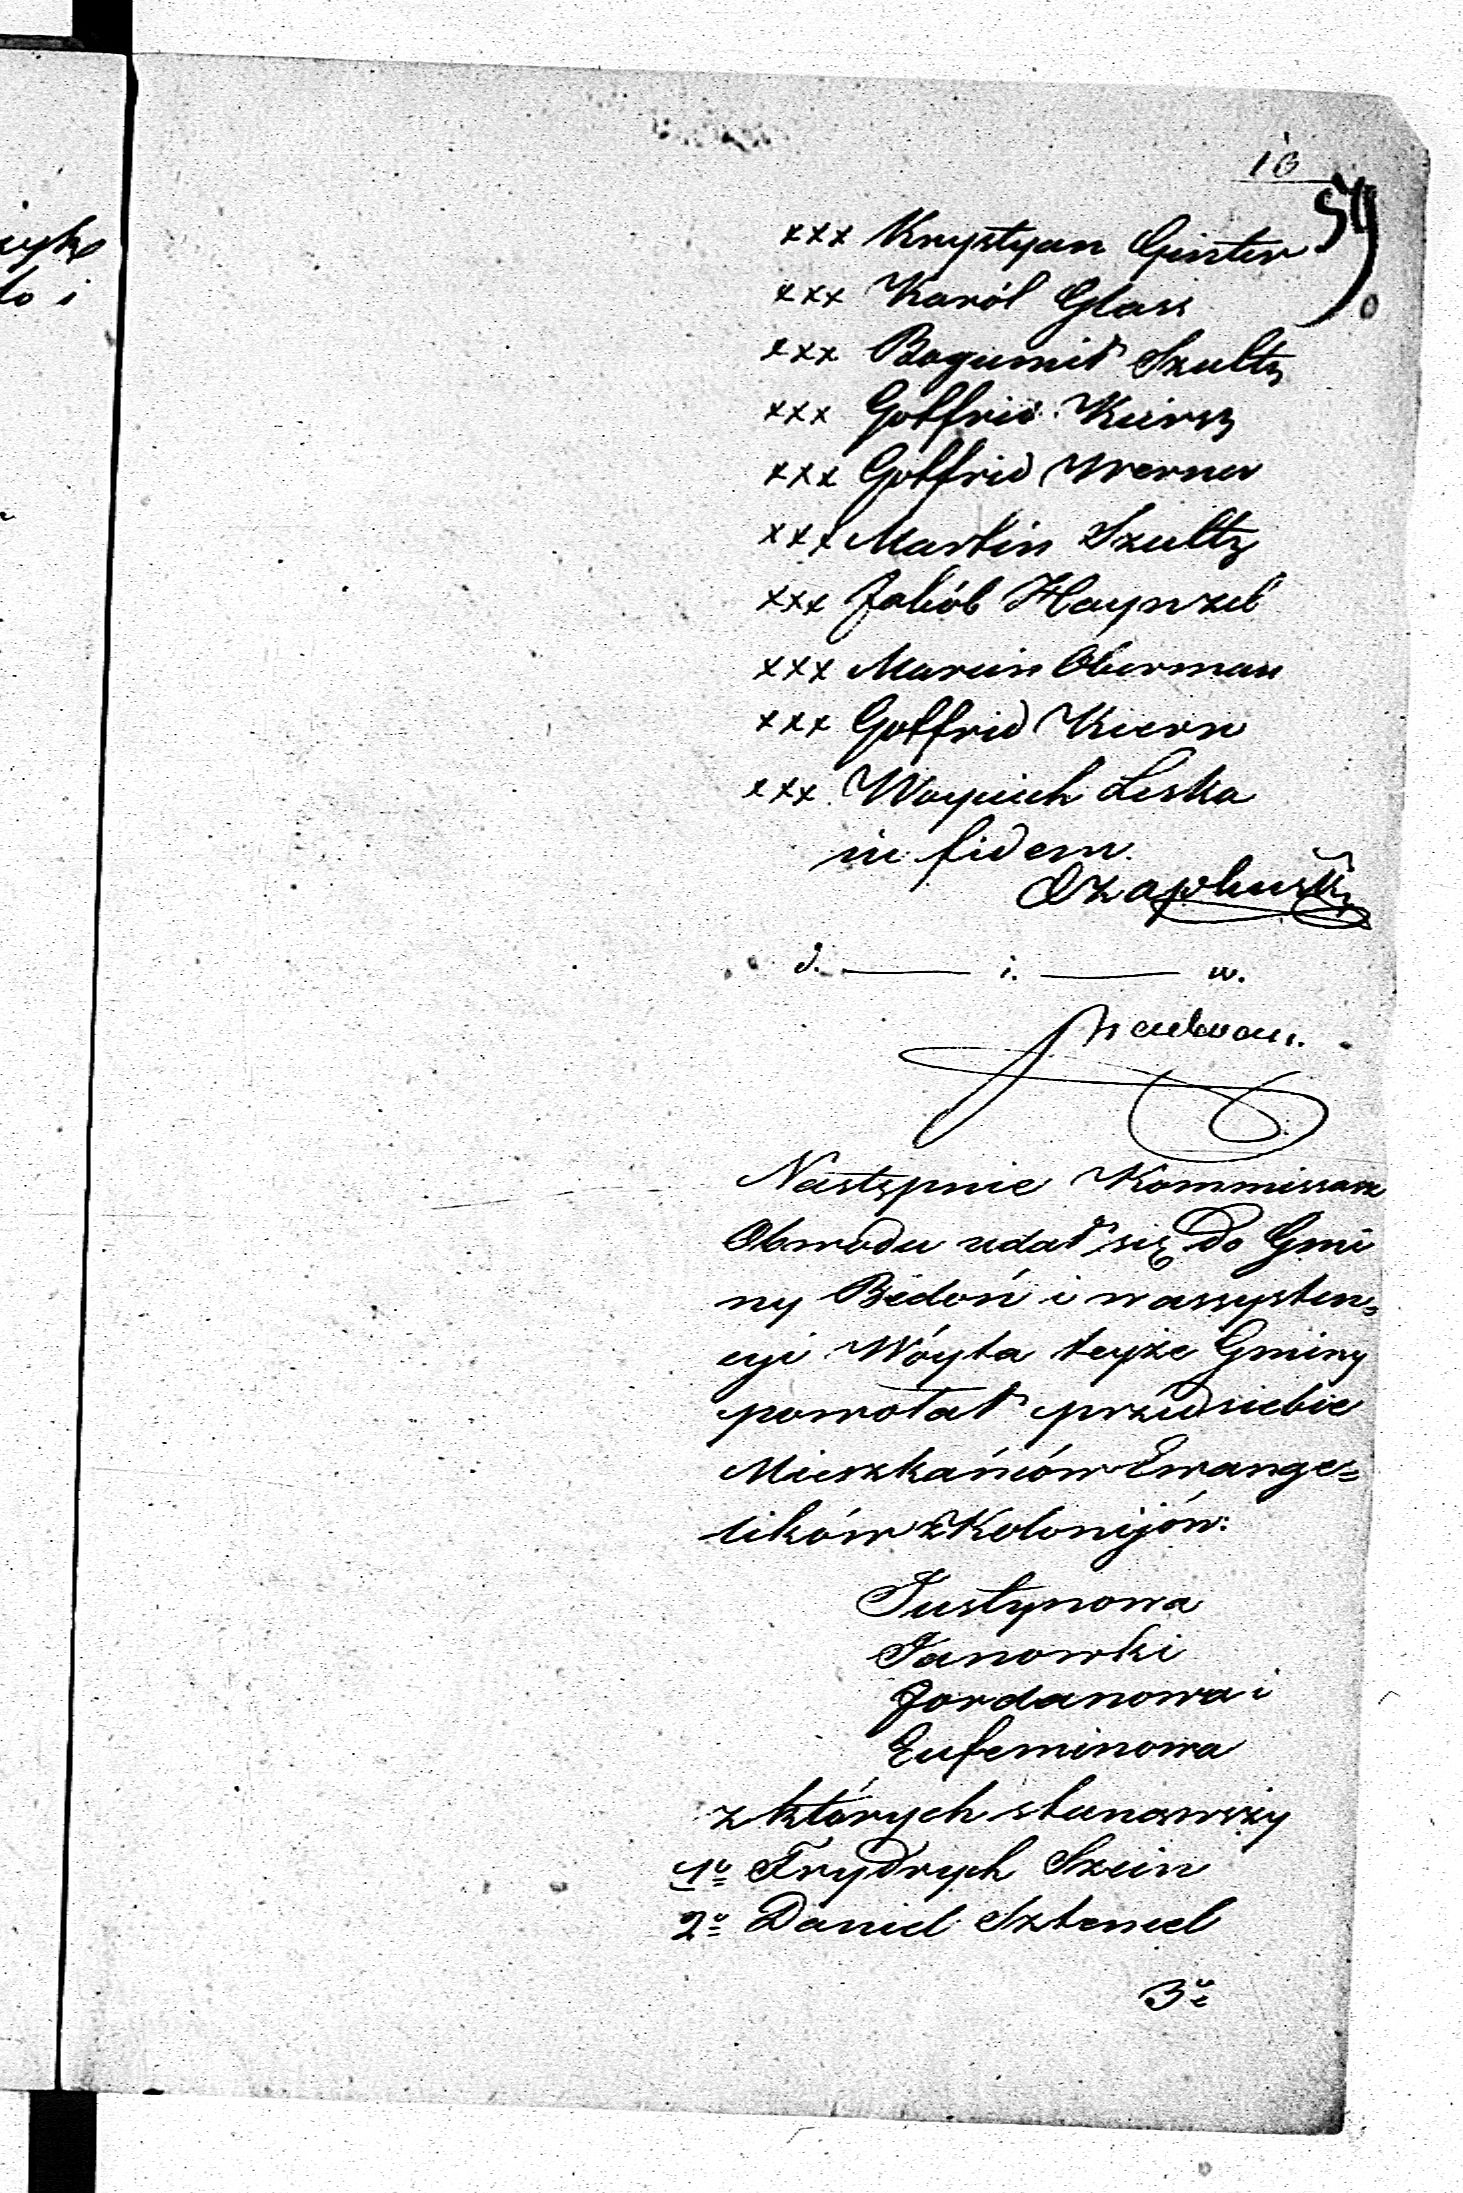 zykę
do i
16
59
xxx Krystyan Ginter
xxx Karól Glass
xxx Bogumił Szultz
xxx Gotfrid Kirsz
xxx Gotfrid Werner
xxx Martin Szultz
xxx Jakób Haynzel
xxx Marcin Oberman
xxx Gotfrid Kiern
xxx Woyciech Leska
in fidem
d. — i. — w.
Następnie Kommissarz
Obwodu udał się do Gmi
ny Bedoń i w assysten=
cyi Wóyta teyże Gminy
powołał przed siebie
Mieszkańców Ewange=
lików z Kolonijów:
Justynowa
Janowki
Jordanowa i
Eufeminowa
z których stanąwszy
1o Frydrych Szein
2o Daniel Sztencel
3o